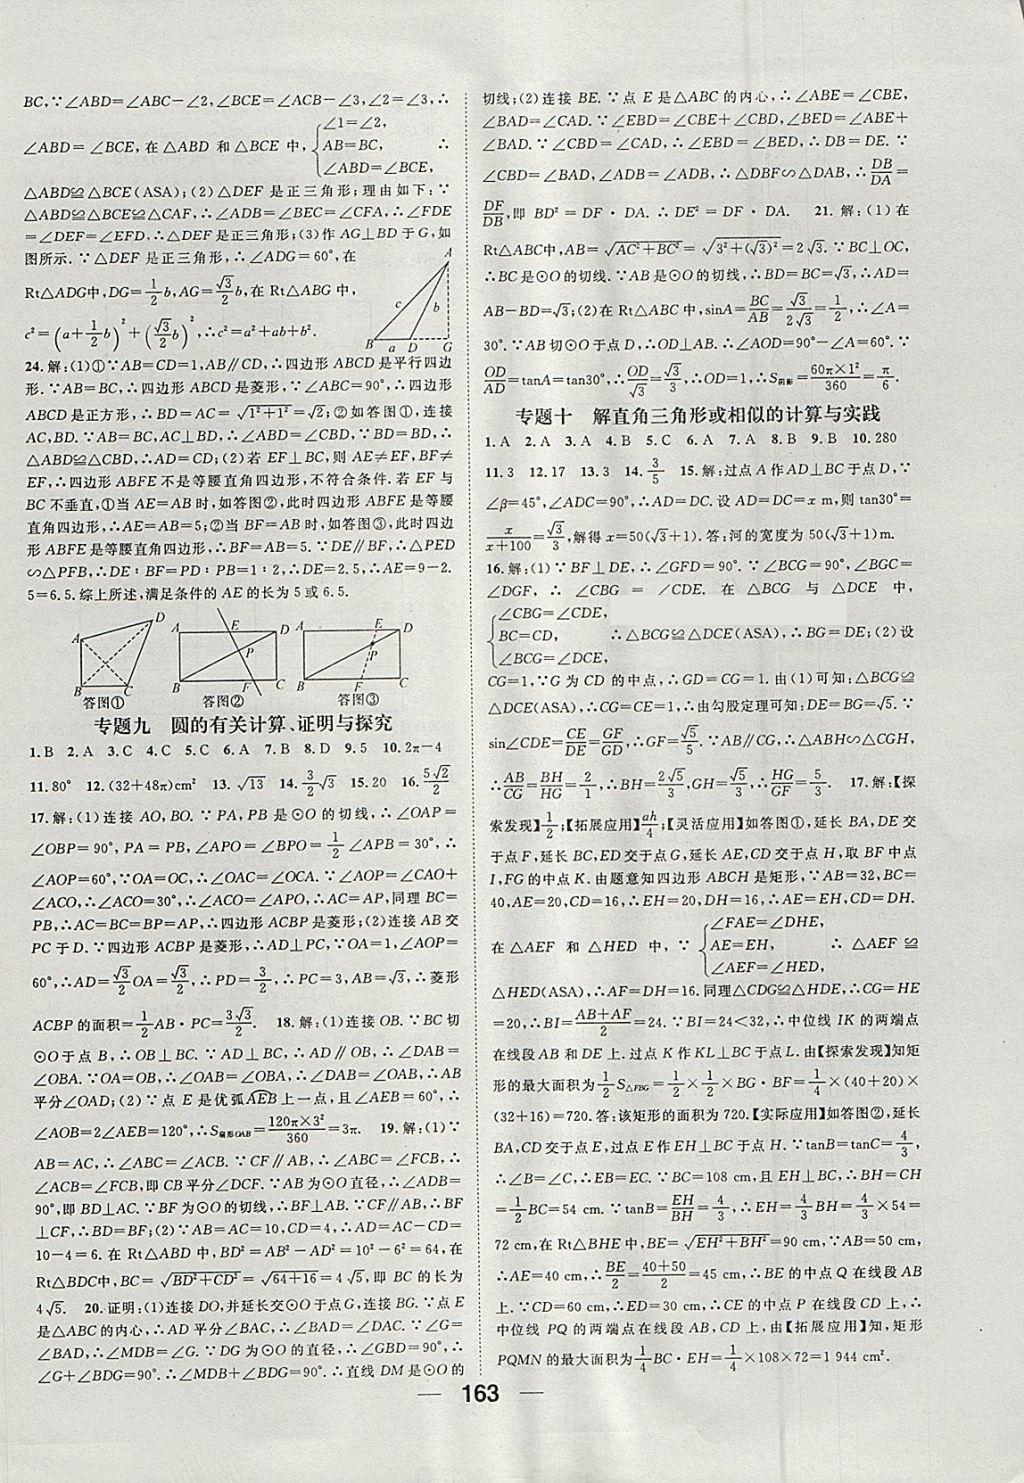 BC,∵∠ABD=∠ABC-∠2,∠BCE=∠ACB-∠3,∠2=∠3,∴
∠ABD=∠BCE,在△ABD 和△BCE 中,{∠1=∠2, AB=BC, ∠ABD=∠BCE, ∴
△ABD≌△BCE(ASA);(2)△DEF 是正三角形;理由如下:∵
△ABD≌△BCE≌△CAF,∴∠ADB=∠BEC=∠CFA,∴∠FDE
=∠DEF=∠EFD,∴△DEF 是正三角形;(3)作 AG⊥BD 于 G,如
图所示.∵△DEF 是正三角形,∴∠ADG=60°,在
Rt△ADG中,DG=1/2b,AG=√3/2b,在 Rt△ABG 中,
c²=(a+1/2b)²+(√3/2b)²,∴c²=a²+ab+b².
A
c
b
B a D G
24.解:(1)①∵AB=CD=1,AB∥CD,∴四边形 ABCD 是平行四边
形.∵AB=BC,∴四边形 ABCD 是菱形,∵∠ABC=90°,∴四边形
ABCD 是正方形,∴BD=AC=√(1²+1²)=√2;②如答图①,连接
AC,BD.∵AB=BC,BD⊥AC,∴△ABD≌△CBD,∴
AD=CD;(2)若 EF⊥BC,则 AE≠EF,BF≠
EF,∴四边形 ABFE 不是等腰直角四边形,不符合条件.若 EF 与
BC 不垂直,①当 AE=AB 时,如答图②,此时四边形 ABFE 是等腰
直角四边形,∴AE=AB=5;②当 BF=AB 时,如答图③,此时四边
形 ABFE 是等腰直角四边形,∴BF=AB=5.∵DE∥BF,∴△PED
∽△PFB,∴DE∶BF=PD∶PB=1∶2,∴DE=2.5,∴AE=9-2.
5=6.5.综上所述,满足条件的 AE 的长为 5 或 6.5.
A D B C 答图①
A E D P B F C 答图②
A E D P B F C 答图③
专题九 圆的有关计算、证明与探究
1.B 2.A 3.C 4.C 5.C 6.A 7.B 8.D 9.5 10.2π-4
11.80° 12.(32+48π)cm² 13.√13 14.3/2√3 15.20 16.5√2/2
17.解:(1)连接 AO,BO.∵PA,PB 是⊙O 的切线,∴∠OAP=
∠OBP=90°,PA=PB,∠APO=∠BPO=1/2∠APB=30°,∴
∠AOP=60°,∵OA=OC,∴∠OAC=∠OCA.∵∠AOP=∠CAO+
∠ACO,∴∠ACO=30°,∴∠ACO=∠APO,∴AC=AP,同理 BC=
PB,∴AC=BC=BP=AP,∴四边形 ACBP 是菱形;(2)连接 AB 交
PC 于 D.∵四边形 ACBP 是菱形,∴AD⊥PC,∵OA=1,∠AOP=
60°,∴AD=√3/2OA=√3/2,∴PD=3/2,∴PC=3,AB=√3,∴菱形
ACBP 的面积=1/2AB·PC=3√3/2. 18.解:(1)连接 OB.∵BC 切
⊙O 于点 B,∴OB⊥BC.∵AD⊥BC,∴AD∥OB,∴∠DAB=
∠OBA.∵OA=OB,∴∠OAB=∠OBA,∴∠DAB=∠OAB,∴AB
平分∠OAD;(2)∵点 E 是优弧AEB上一点,且∠AEB=60°,∴
∠AOB=2∠AEB=120°,∴S扇形OAB=120π×3²/360=3π. 19.解:(1)∵
AB=AC,∴∠ABC=∠ACB.∵CF∥AB,∴∠ABC=∠FCB,∴
∠ACB=∠FCB,即 CB 平分∠DCF.∵AB为⊙O直径,∴∠ADB=
90°,即 BD⊥AC.∵BF为⊙O的切线,∴BF⊥AB.∵CF∥AB,∴BF
⊥CF,∴BD=BF;(2)∵AB=AC=10,CD=4,∴AD=AC-CD=
10-4=6.在 Rt△ABD 中,BD²=AB²-AD²=10²-6²=64,在
Rt△BDC中,BC=√(BD²+CD²)=√(64+16)=4√5,即 BC 的长为
4√5. 20.证明:(1)连接 DO,并延长交⊙O于点 G,连接 BG.∵点 E
是△ABC 的内心,∴AD 平分∠BAC,∴∠BAD=∠DAC.∵∠G=
∠BAD,∴∠MDB=∠G.∵DG 为⊙O 的直径,∴∠GBD=90°,∴
∠G+∠BDG=90°.∴∠MDB+∠BDG=90°.∴直线 DM 是⊙O 的
切线;(2)连接 BE.∵点 E 是△ABC 的内心,∴∠ABE=∠CBE,
∠BAD=∠CAD.∵∠EBD=∠CBE+∠CBD,∠BED=∠ABE+
∠BAD.∵∠CBD=∠CAD,∴∠EBD=∠BED,∴DB=DE.∵
∠CBD=∠BAD,∠ADB=∠ADB,∴△DBF∽△DAB,∴DB/DA=
DF/DB,即 BD²=DF·DA.∴DE²=DF·DA. 21.解:(1)在
Rt△ABC中,AB=√(AC²+BC²)=√(3²+(√3)²)=2√3.∵BC⊥OC,
∴BC 是⊙O 的切线.∵AB 是⊙O 的切线,∴BD=BC=√3,∴AD=
AB-BD=√3;(2)在 Rt△ABC 中,sinA=BC/AB=√3/2√3=1/2,∴∠A=
30°.∵AB切⊙O于点 D,∴OD⊥AB.∴∠AOD=90°-∠A=60°.∵
OD/AD=tanA=tan30°,∴OD/√3=√3/3,∴OD=1,∴S阴影=60π×1²/360=π/6.
专题十 解直角三角形或相似的计算与实践
1.A 2.A 3.A 4.B 5.C 6.A 7.A 8.B 9.B 10.280
11.3 12.17 13.3 14.3/5 15.解:过点 A 作 AD⊥BC于点 D,∵
∠β=45°,∠ADC=90°,∴AD=DC.设 AD=DC=x m,则 tan30°=
x/(x+100)=√3/3,解得 x=50(√3+1).答:河的宽度为 50(√3+1)m.
16.解:(1)∵BF⊥DE,∴∠GFD=90°.∵∠BCG=90°,∠BGC=
∠DGF,∴∠CBG=∠CDE.在△BCG 与△DCE 中,
{∠CBG=∠CDE, BC=CD, ∠BCG=∠DCE, ∴△BCG≌△DCE(ASA),∴BG=DE;(2)设
CG=1,∵G 为 CD 的中点,∴GD=CG=1.由(1)可知:△BCG≌
△DCE(ASA),∴CG=CE=1,∴由勾股定理可知:DE=BG=√5.∵
sin∠CDE=CE/DE=GF/GD,∴GF=√5/5.∵AB∥CG,∴△ABH∽△CGH,
∴AB/CG=BH/HG=2/1,∴BH=2√5/3,GH=√5/3,∴HG/GF=5/3. 17.解:【探
索发现】1/2;【拓展应用】ah/4;【灵活应用】如答图①,延长 BA,DE 交
于点 F,延长 BC,ED交于点 G,延长 AE,CD交于点 H,取 BF中点
I,FG 的中点 K.由题意知四边形 ABCH 是矩形,∵AB=32,BC=
40,AE=20,CD=16,∴EH=20,DH=16,∴AE=EH,CD=DH.
在△AEF 和△HED 中,∵{∠FAE=∠DHE, AE=EH, ∠AEF=∠HED, ∴△AEF≌
△HED(ASA),∴AF=DH=16.同理△CDG≌△HDE,∴CG=HE
=20,∴BI=(AB+AF)/2=24.∵BI=24<32,∴中位线 IK 的两端点
在线段 AB 和 DE 上.过点 K 作 KL⊥BC于点 L.由【探索发现】知矩
形的最大面积为1/2S△FBG=1/2×1/2×BG·BF=1/4×(40+20)×
(32+16)=720.答:该矩形的面积为 720.【实际应用】如答图②,延长
BA,CD 交于点 E,过点 E 作 EH⊥BC 于点 H.∵tanB=tanC=4/3,
∴∠B=∠C,∴EB=EC.∵BC=108 cm,且 EH⊥BC,∴BH=CH
=1/2BC=54 cm.∵tanB=EH/BH=4/3,∴EH=4/3BH=4/3×54=
72 cm,在 Rt△BHE 中,BE=√(EH²+BH²)=90 cm,∵AB=50 cm,
∴AE=40 cm,∴BE/2=(40+50)/2=45 cm,∴BE 的中点 Q 在线段 AB
上.∵CD=60 cm,∴ED=30 cm,∴CE 的中点 P 在线段 CD 上,∴
中位线 PQ 的两端点在线段 AB,CD 上,由【拓展应用】知,矩形
PQMN 的最大面积为1/4BC·EH=1/4×108×72=1 944 cm².
163